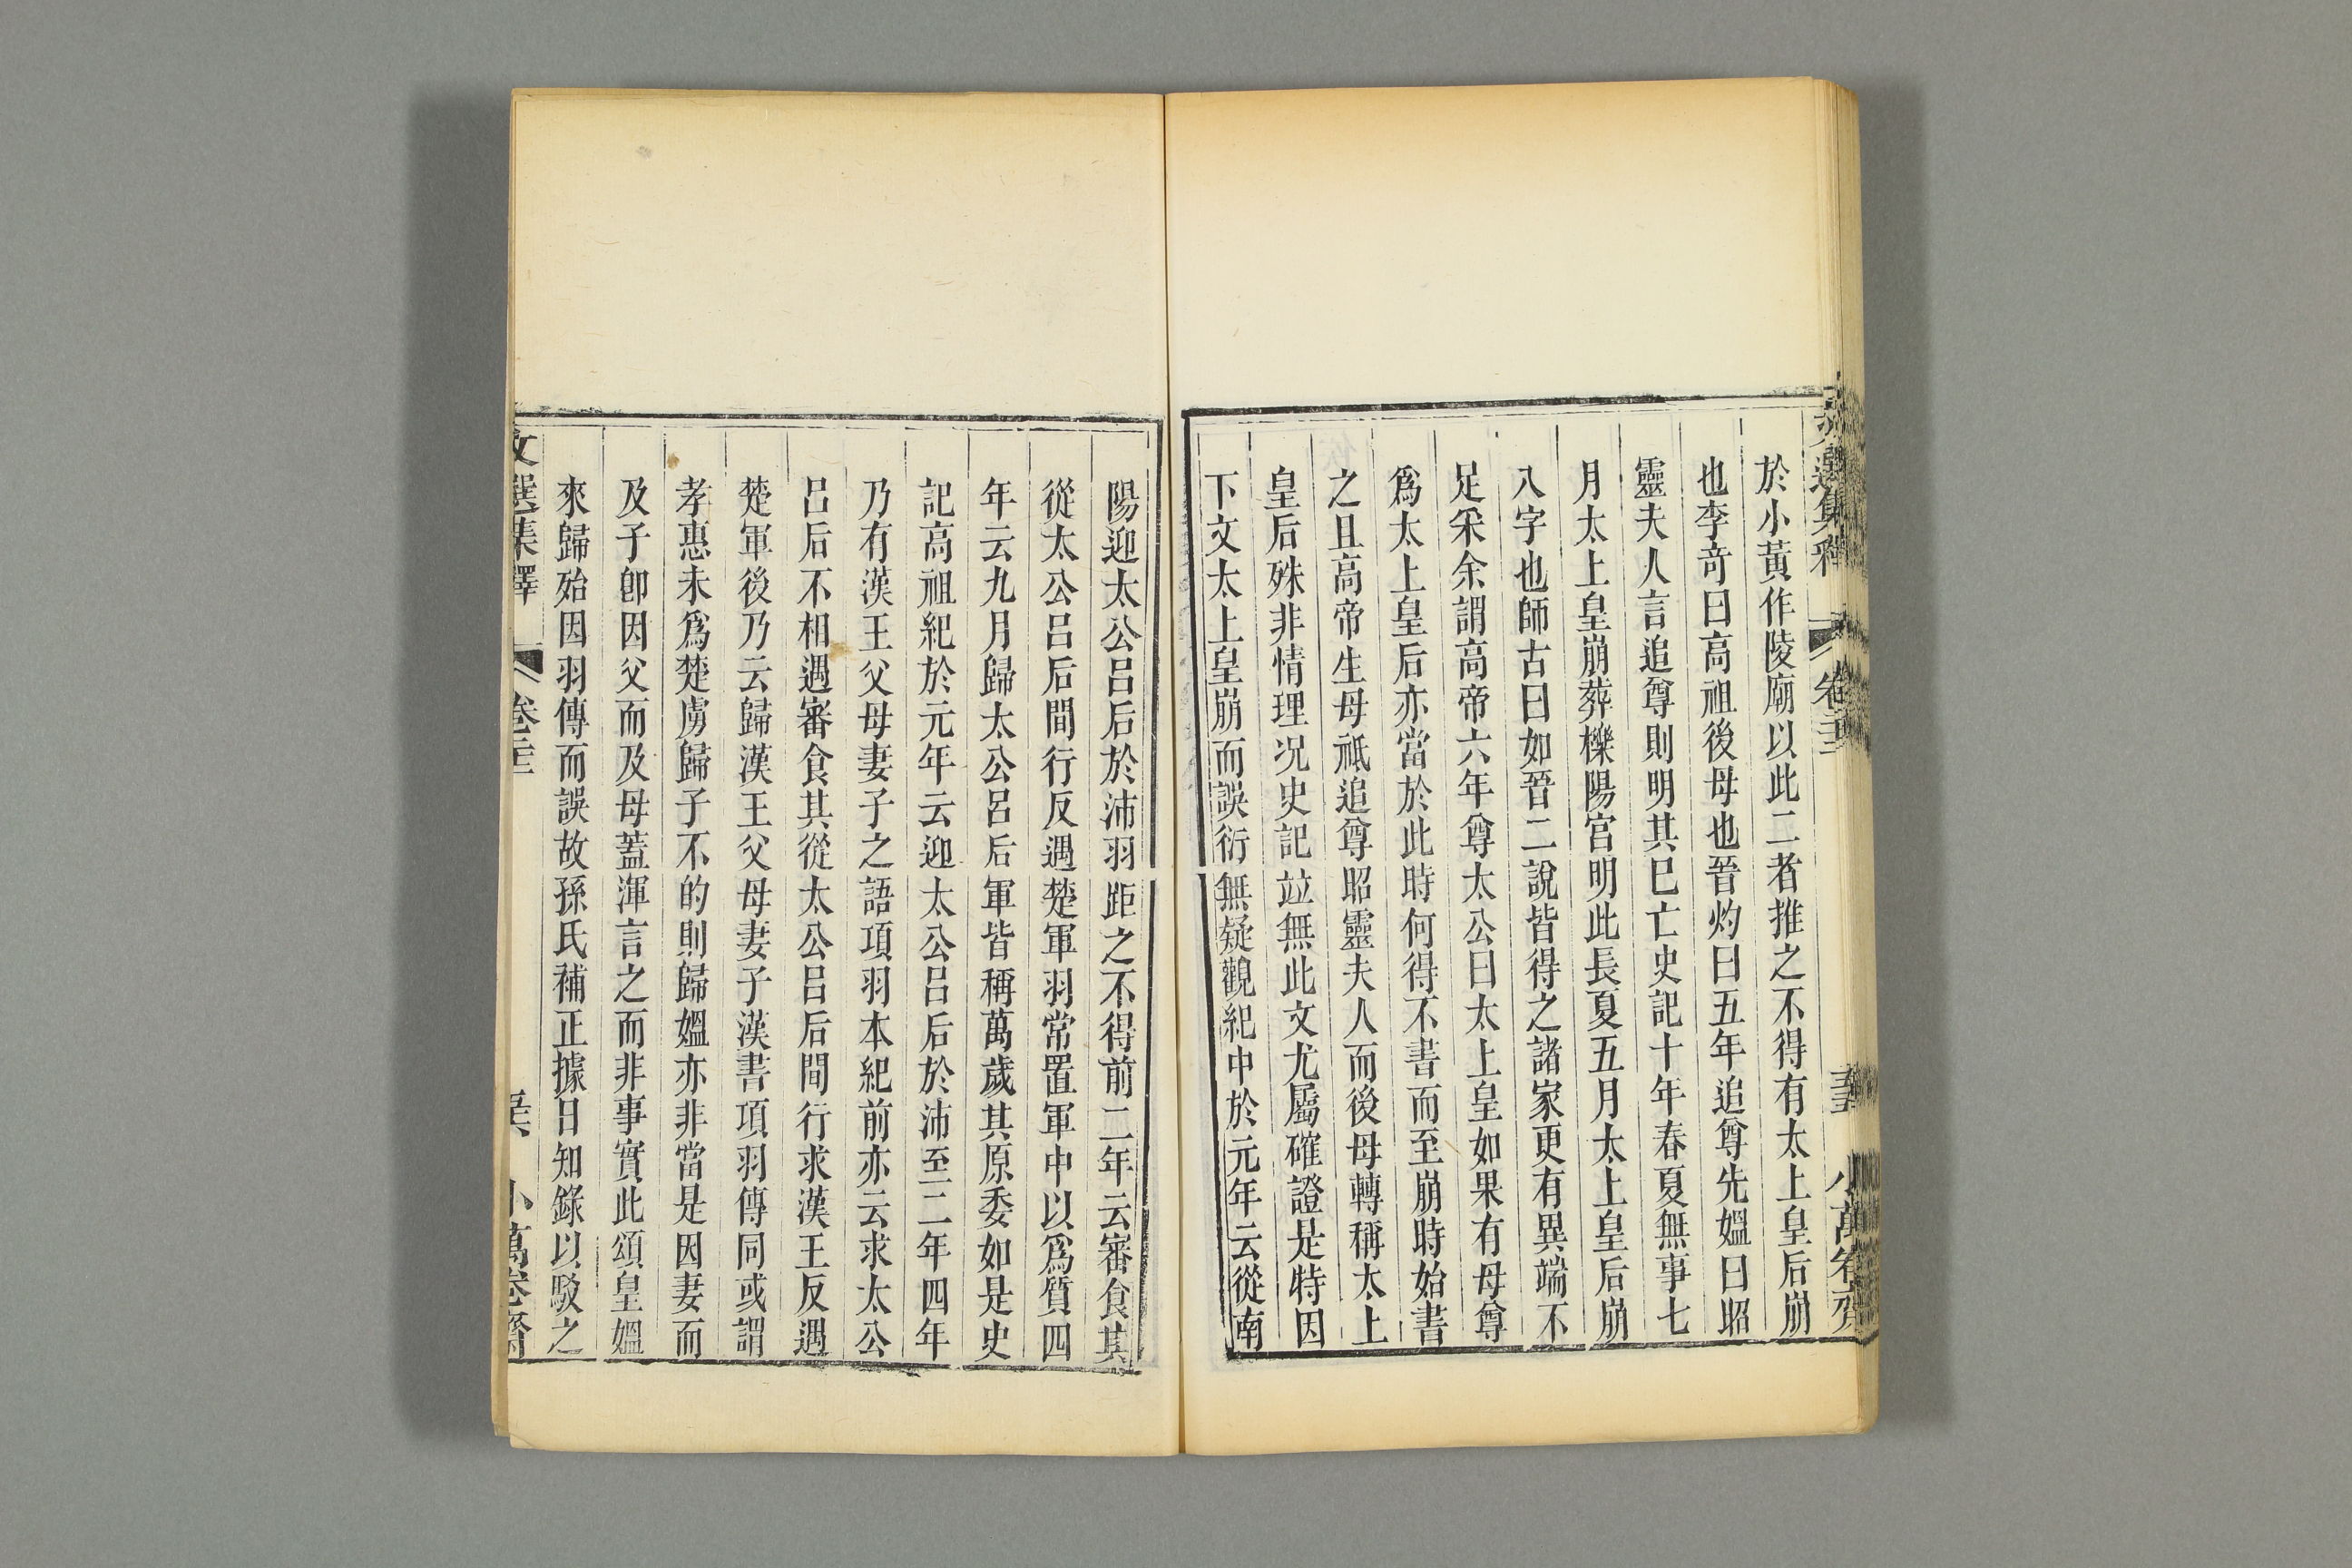 於小黃作陵廟以此二者推之不得有太上皇后崩
也李奇曰高祖後母也晉灼曰五年追尊先媼曰昭
靈夫人言追尊則明其已亡史記十年春夏無事七
月太上皇崩葬櫟陽宮明此長夏五月太上皇后崩
八字也師古曰如晉二說皆得之諸家更有異端不
足采余謂高帝六年尊太公曰太上皇如果有母尊
爲太上皇后亦當於此時何得不書而至崩時始書
之且高帝生母祗追尊昭靈夫人而後母轉稱太上
皇后殊非情理况史記竝無此文尤屬確證是特因
下文太上皇崩而誤衍無疑觀紀中於元年云從南
陽迎太公呂后於沛羽距之不得前二年云審食其
從太公呂后間行反遇楚軍羽常置軍中以爲質四
年云九月歸太公呂后軍皆稱萬歲其原委如是史
記高祖紀於元年云迎太公呂后於沛至二年四年
乃有漢王父母妻子之語項羽本紀前亦云求太公
呂后不相遇審食其從太公呂后間行求漢王反遇
楚軍後乃云歸漢王父母妻子漢書項羽傳同或謂
孝惠未爲楚虜歸子不的則歸媼亦非當是因妻而
及子卽因父而及母蓋渾言之而非事實此頌皇媼
來歸殆因羽傳而誤故孫氏補正據日知錄以駁之
文選集釋
小萬卷齋